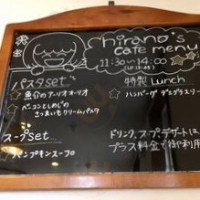 hirano's
cafe menu
11:30〜14:00
パスタset
☆魚介のアーリオオーリオ
☆ベーコンとしめじの
さつまいもクリームパスタ
スープset
☆パンプキンスープ
特製 Lunch
☆ハンバーグ デミグラス
ドリンク、スープ、デザートは
プラス料金